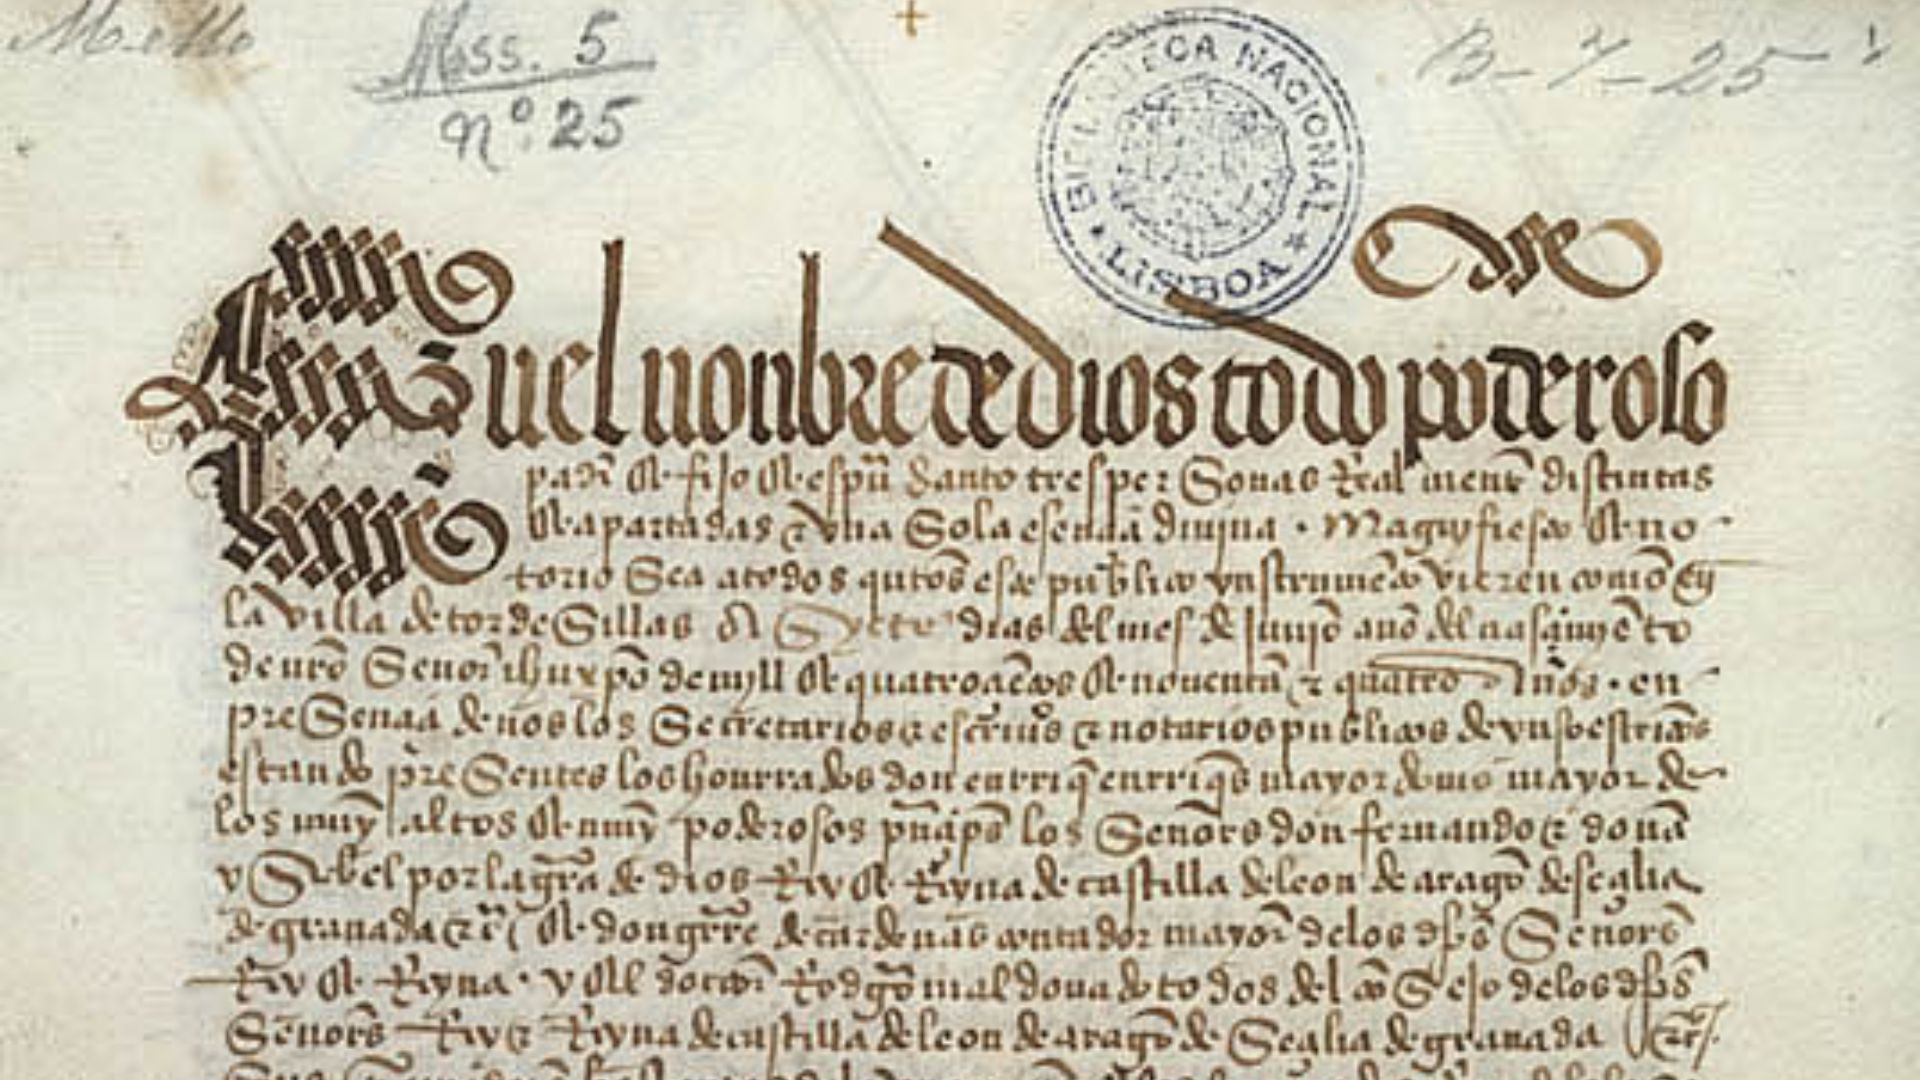 Mss. 5
nº. 25
B-7-25
BIBLIOTECA NACIONAL
LISBOA
En el nonbre de dios todo poderoso
padr̃ & fijo & espũ Santo tres personas Realmente distintas
& apartadas e vna Sola esençia diuina · Magnyfiesto & no
torio Sea a todos quãtos este publico ynstrumẽto vieren como en
la villa de tordeSillas a Syete dias del mes de Junio año del nasçimyẽto
de nr̃o Señor ihu xp̃o de myll & quatroçiẽtos & nouenta e quatro Años · en
preSençia de nos los Secretarios e escriuãs e notarios publicos de yuso escriptos
estando preSentes los honrrados don enrriq̃ enrriqs mayordomo mayor de
los muy altos & muy poderosos prinçipes los Señores don fernando e doña
ySabel por la grãa de dios Rey & Reyna de castilla de leon de aragõ de seçilia
de granada etc & don gutrre de cardenas contador mayor de los dhõs Señores
Rey & Reyna · y &l doctor Rodrigo maldonado todos del conSejo de los dhõs
Señores Rey e Reyna de castilla de leon de aragõ de Seçilia de granada etc.